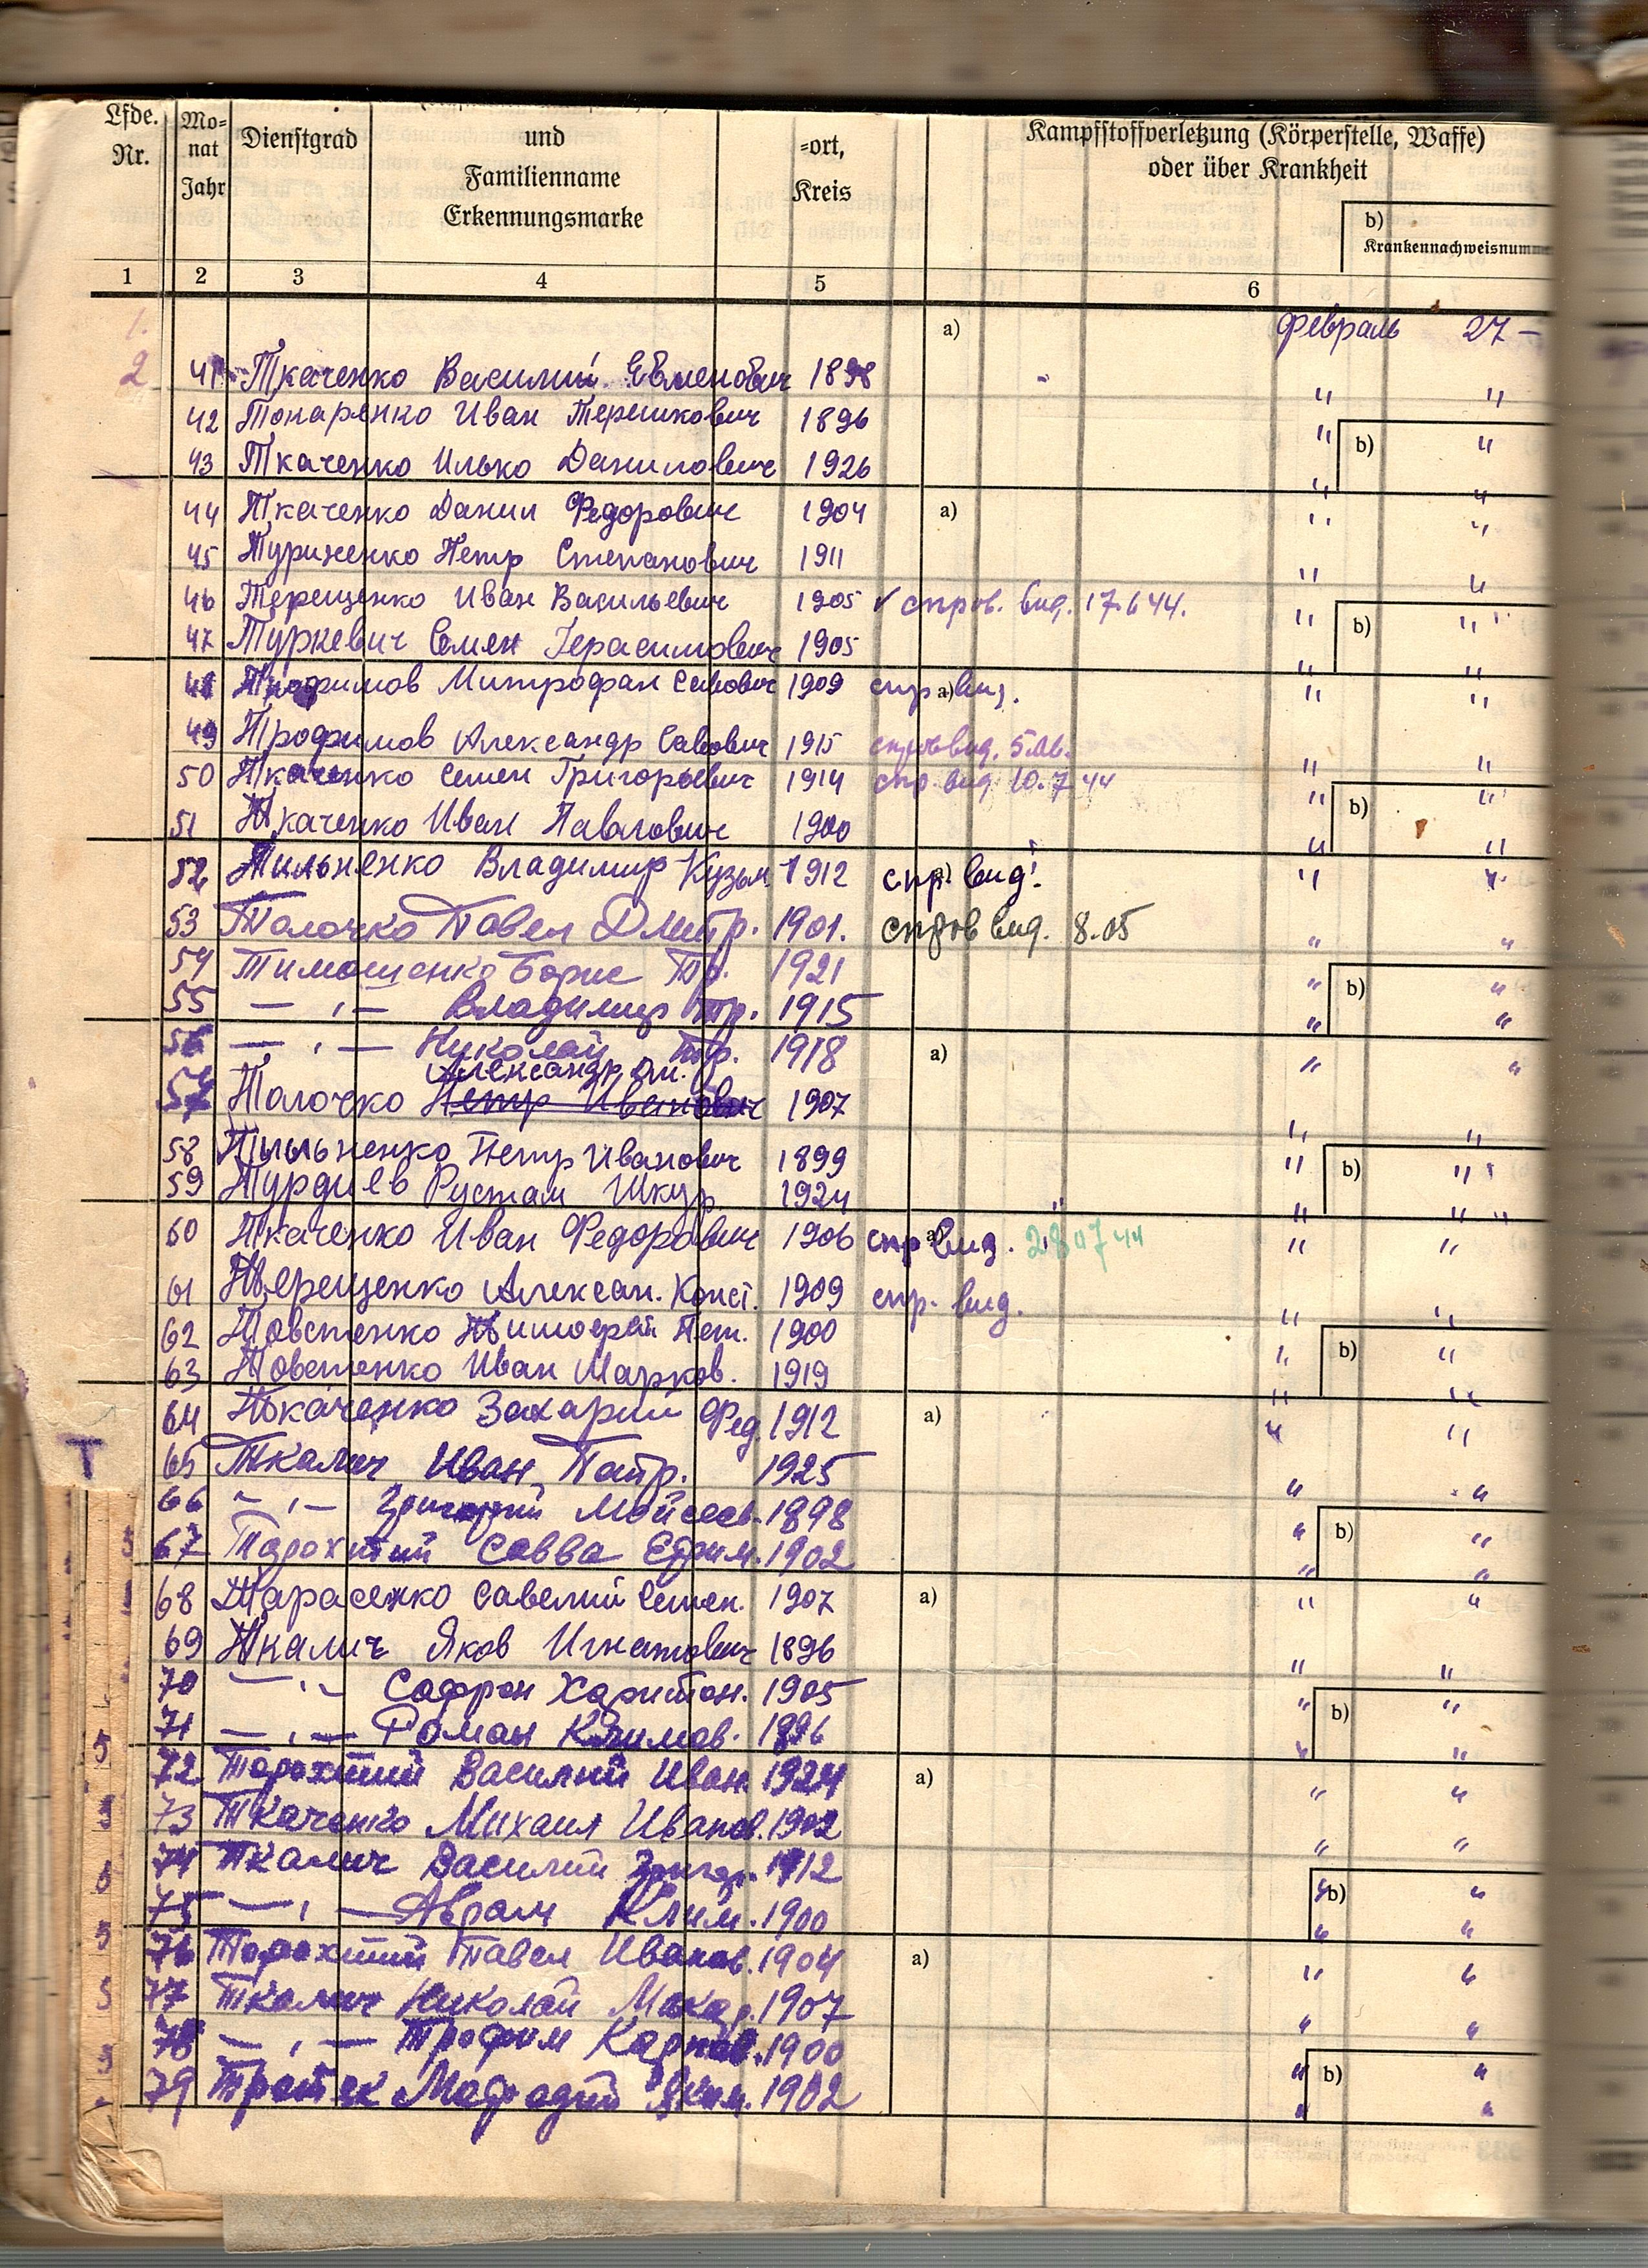 Lfde. Nr. Mo=nat Jahr Dienstgrad und Familienname Erkennungsmarke =ort, Kreis Kampfstoffverletzung (Körperstelle, Waffe) oder über Krankheit
b) Krankennachweisnumm
1 2 3 4 5 6
1. a) Февраль 27 —
2 41 Ткаченко Василий Евменович 1898
42 Токаренко Иван Терешкович 1896 " "
43 Ткаченко Илько Данилович 1926 " b) "
44 Ткаченко Данил Федорович 1904 a) " "
45 Петр Степанович 1911
46 Терещенко Иван Васильевич 1905 ✓ спров. вид. 17.6 44. " "
47 Туркевич Семен Герасимович 1905 " b) "
48 Трофимов Митрофан Савович 1909 спр a) вид. " "
49 Трофимов Александр Савович 1915 справ вид. 5.
50 Ткаченко Семен Григорьевич 1914 спр. вид 10.7 44 " "
51 Ткаченко Иван Павлович 1900 " b) "
52 Тильненко Владимир Кузьм. 1912 спр. вид. " "
53 Толочко Павел Дмитр. 1901. справ вид. 8.05 " "
54 Тимошенко Борис Тр. 1921 " b) "
55 — " — Владимир тр. 1915 " "
56 — " — Николай Тр. 1918 a) " "
Александр
57 Толочко Петр Иванович 1907
58 Тыльненко Петр Иванович 1899 " b) "
59 Турдиев Рустам Шкур 1924 " "
60 Ткаченко Иван Федорович 1906 спр a) вид. 28 07 44 " "
61 Терещенко Алексан. Конст. 1909 спр. вид.
62 Товстенко Тимофей Пет. 1900 " "
63 Товстенко Иван Марков. 1919 " b) "
64 Ткаченко Захарий Фед. 1912 a) " "
65 Ткалич Иван Патр. 1925
66 — " — Григорий Мойсеев. 1898 " "
67 Торохтий Савва Ефим. 1902 " b) "
68 Тарасенко Савелий Семен. 1907 a) " "
69 Ткалич Яков Игнатович 1896
70 — " — Сафрон Харитон. 1905 " "
71 — " — Роман Климов. 1896 " b) "
72 Торохтий Василий Иван. 1924 a) " "
73 Ткаченко Михаил Иванов. 1902
74 Ткалич Василий Григор. 1912 " "
75 — " — Абрам Клим. 1900 " b) "
76 Торохтий Павел Иванов. 1904 a) " "
77 Ткалич Николай Макар. 1907
78 — " — Трофим Карпов. 1900 " "
79 Яким. 1902 " b) "
Т